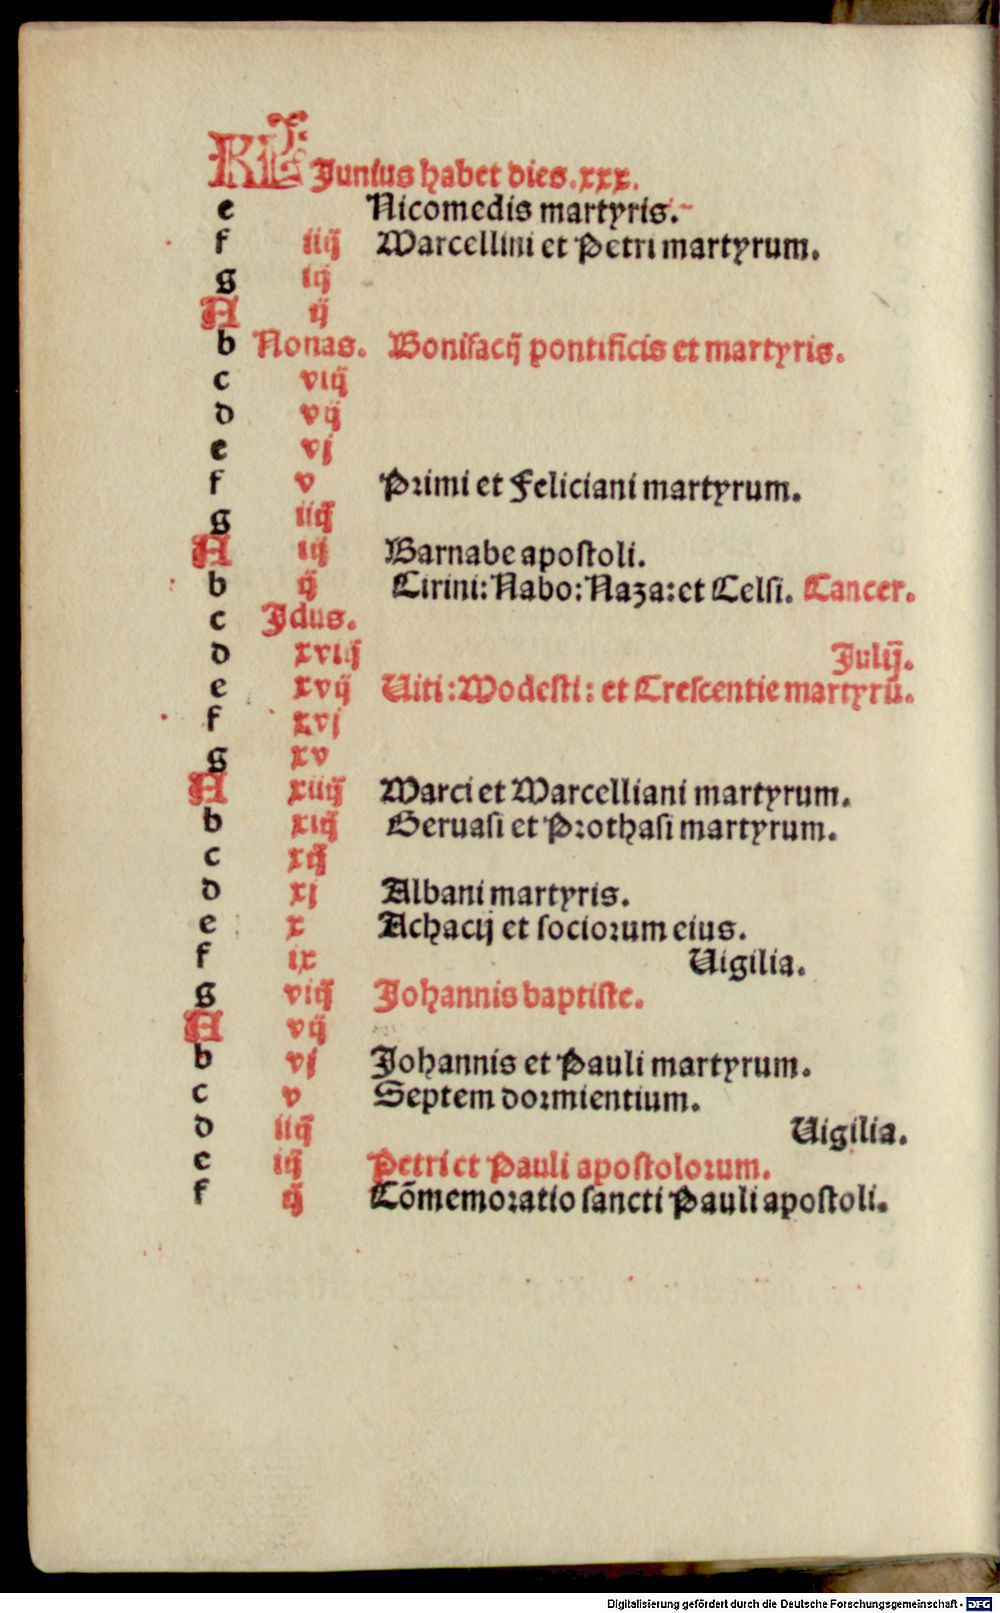 KL Junius habet dies.xxx.
e Nicomedis martyris.
f iiij Marcellini et Petri martyrum.
g iij
A ij
b Nonas. Bonifacij pontificis et martyris.
c viij
d vij
e vj
f v Primi et Feliciani martyrum.
g iiij
A iij Barnabe apostoli.
b ij Cirini: Nabo: Naza: et Celsi. Cancer.
c Jdus.
d xviij Julij.
e xvij Uiti: Modesti: et Crescentie martyrū.
f xvj
g xv
A xiiij Marci et Marcelliani martyrum.
b xiij Geruasi et Prothasi martyrum.
c xij
d xj Albani martyris.
e x Achacij et sociorum eius.
f ix Uigilia.
g viij Johannis baptiste.
A vij
b vj Johannis et Pauli martyrum.
c v Septem dormientium.
d iiij Uigilia.
e iij Petri et Pauli apostolorum.
f ij Cōmemoratio sancti Pauli apostoli.
Digitalisierung gefördert durch die Deutsche Forschungsgemeinschaft - DFG